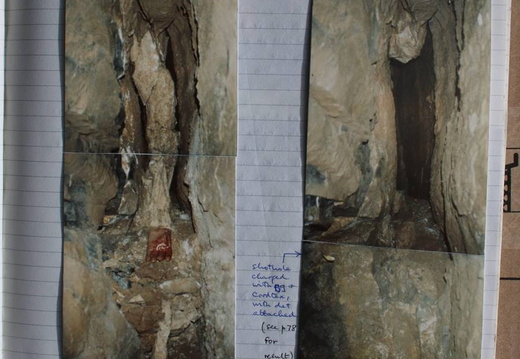 Shothole
charged
with gg +
Cordtex,
with det
attached
(see p78
for
result)